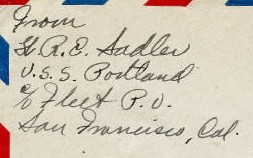 From
H. R. E. Sadler
U.S.S. Portland
℅ Fleet P.O.
San Francisco, Cal.